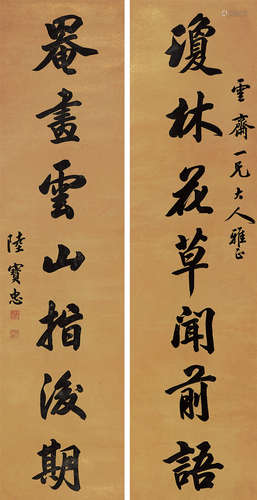 瓊林花草聞前語
雲齋一兄大人雅正
罨畫雲山指後期
陸寶忠